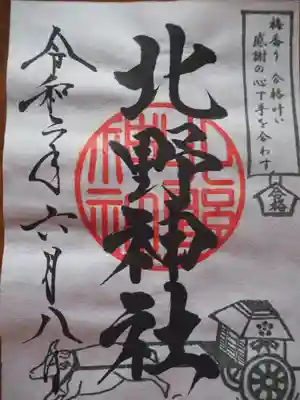 梅香り 合格叶い
感謝の心で手を合わす
合格
北野神社
令和六年六月八日